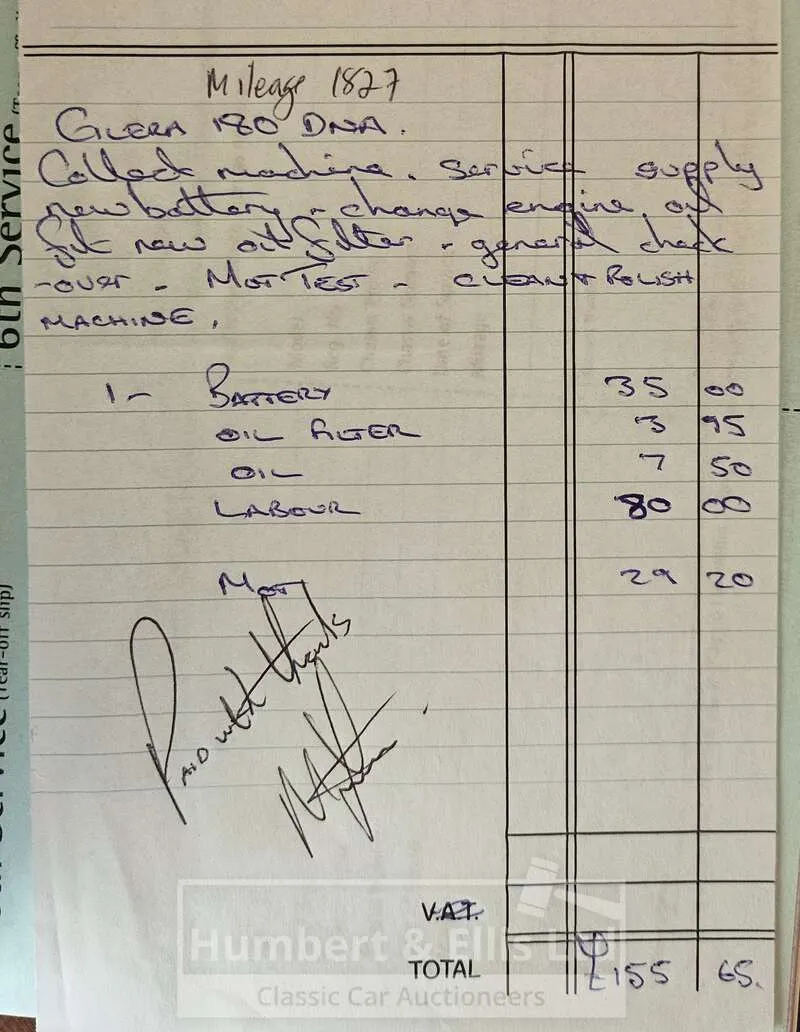 Mileage 1827
GILERA 180 DNA.
Collect machine. Service supply
new battery - change engine oil
fit new oil filter - general check
-over - MOT TEST - CLEAN + POLISH
MACHINE.
1 - BATTERY 35 00
OIL FILTER 3 95
OIL 7 50
LABOUR 80 00
MOT 29 20
PAID with thanks
V.A.T.
Humbert & Ellis Ltd
TOTAL £155 65.
Classic Car Auctioneers
6th Service
(Tear-off slip)